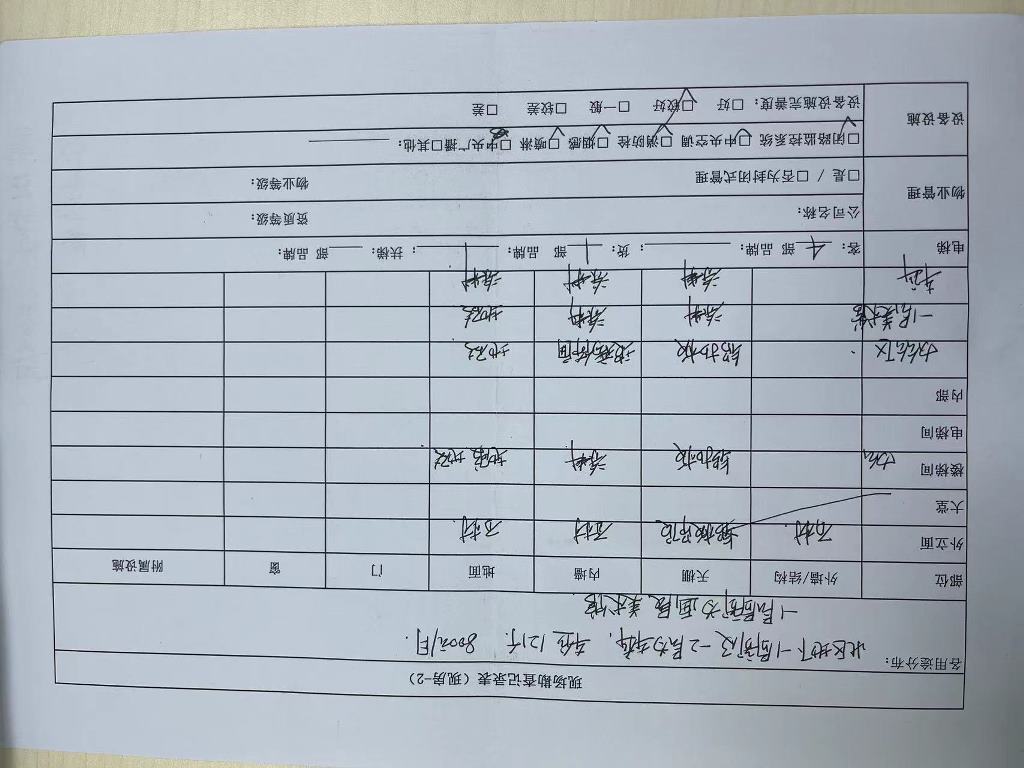 现场勘查记录表（现房-2）
各用途分布： 北区地下-1局部及-2层为车库, 车位121个. 800元/月.
-1层局部为 美术馆.
部位 外墙/结构 天棚 内墙 地面 门 窗 附属设施
外立面 石材. 石材 石材.
大堂
楼梯间 铝扣板 涂料 地砖
电梯间
内部
办公区 铝扣板 地砖
-1层美术馆 涂料 涂料 地砖
车库 涂料 涂料 涂料
电梯 客：4 部 品牌： ；货：1 部 品牌： ；扶梯： 部 品牌：
物业管理 公司名称： 资质等级：
□是 / □否为封闭式管理 物业等级：
设备设施 □闭路监控系统 □中央空调 □消防栓 □烟感 □喷淋 □中央广播 □其他：
设备设施完善度：□好 □较好 □一般 □较差 □差